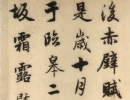 後赤壁賦
是歲十月
于臨皋二
坂霜露